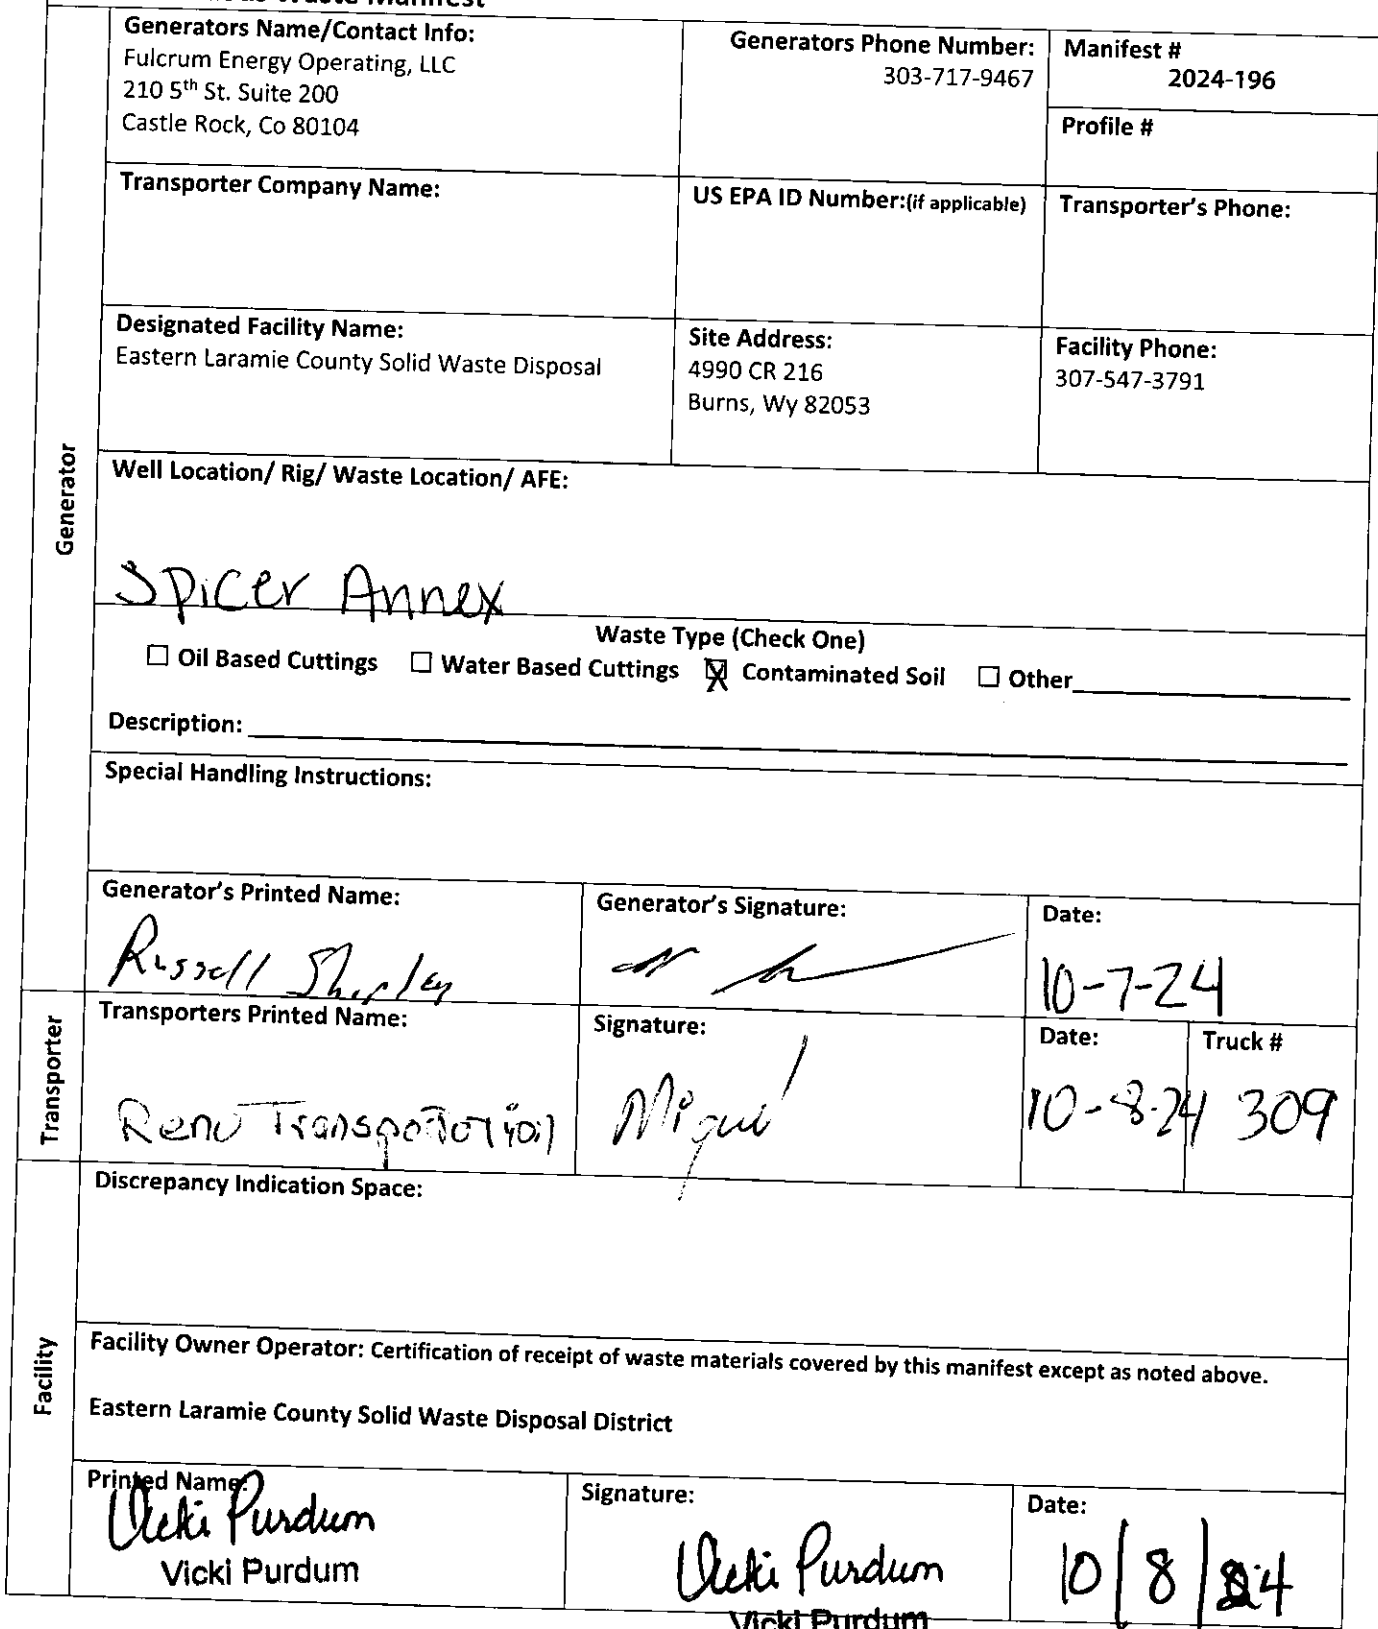 Waste Manifest
Generators Name/Contact Info:
Fulcrum Energy Operating, LLC
210 5th St. Suite 200
Castle Rock, Co 80104
Generators Phone Number:
303-717-9467
Manifest #
2024-196
Profile #
Transporter Company Name:
US EPA ID Number:(if applicable)
Transporter's Phone:
Designated Facility Name:
Eastern Laramie County Solid Waste Disposal
Site Address:
4990 CR 216
Burns, Wy 82053
Facility Phone:
307-547-3791
Generator
Well Location/ Rig/ Waste Location/ AFE:
Spicer Annex
Waste Type (Check One)
☐ Oil Based Cuttings ☐ Water Based Cuttings ☒ Contaminated Soil ☐ Other
Description:
Special Handling Instructions:
Generator's Printed Name:
Russell Shipley
Generator's Signature:
Date:
10-7-24
Transporter
Transporters Printed Name:
Reno Transportation
Signature:
Miguel
Date:
10-8-24
Truck #
309
Facility
Discrepancy Indication Space:
Facility Owner Operator: Certification of receipt of waste materials covered by this manifest except as noted above.
Eastern Laramie County Solid Waste Disposal District
Printed Name:
Vicki Purdum
Vicki Purdum
Signature:
Vicki Purdum
Vicki Purdum
Date:
10/8/24